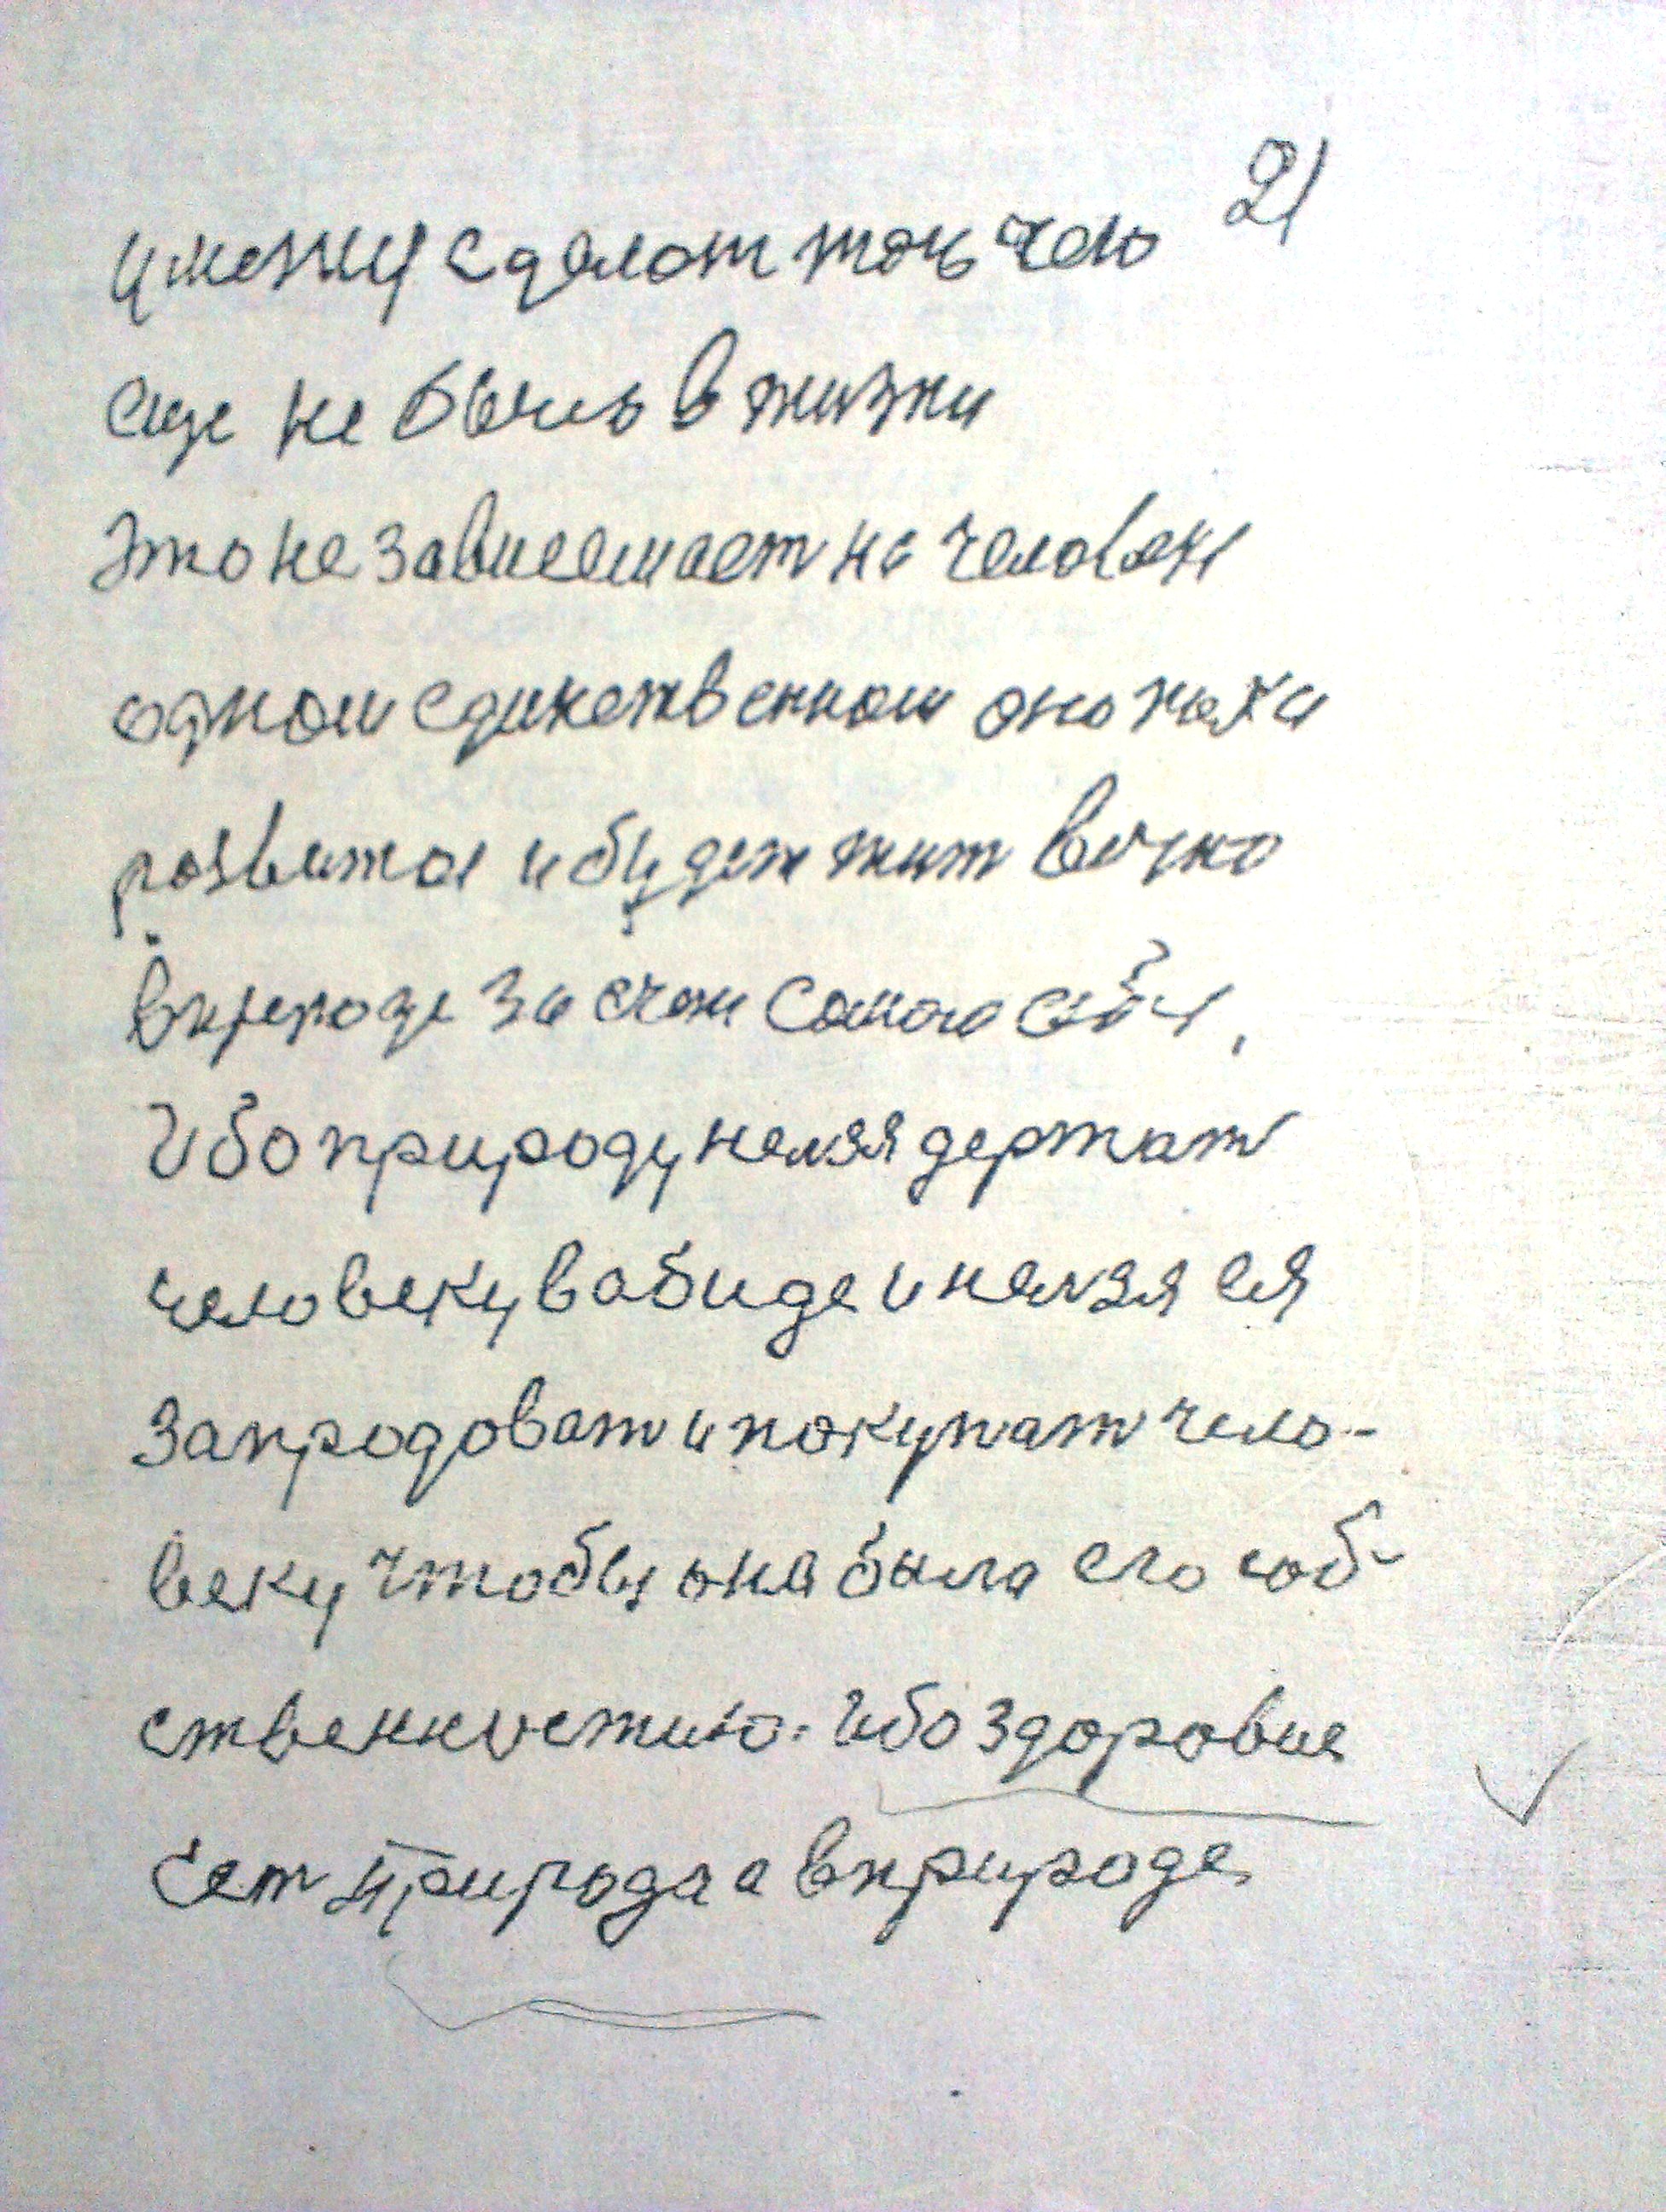 21
сделат чего
еще не было в жизни
Это не на человеке
одном единственном оно
развитое и будет жит вечно
в природе за счет самого себя,
Ибо природу нелзя держат
человеку в обиде и нелзя ея
запродоват и покупат чело-
веку чтобы она была его соб-
ственностию. Ибо здоровие
ест природа а в природе